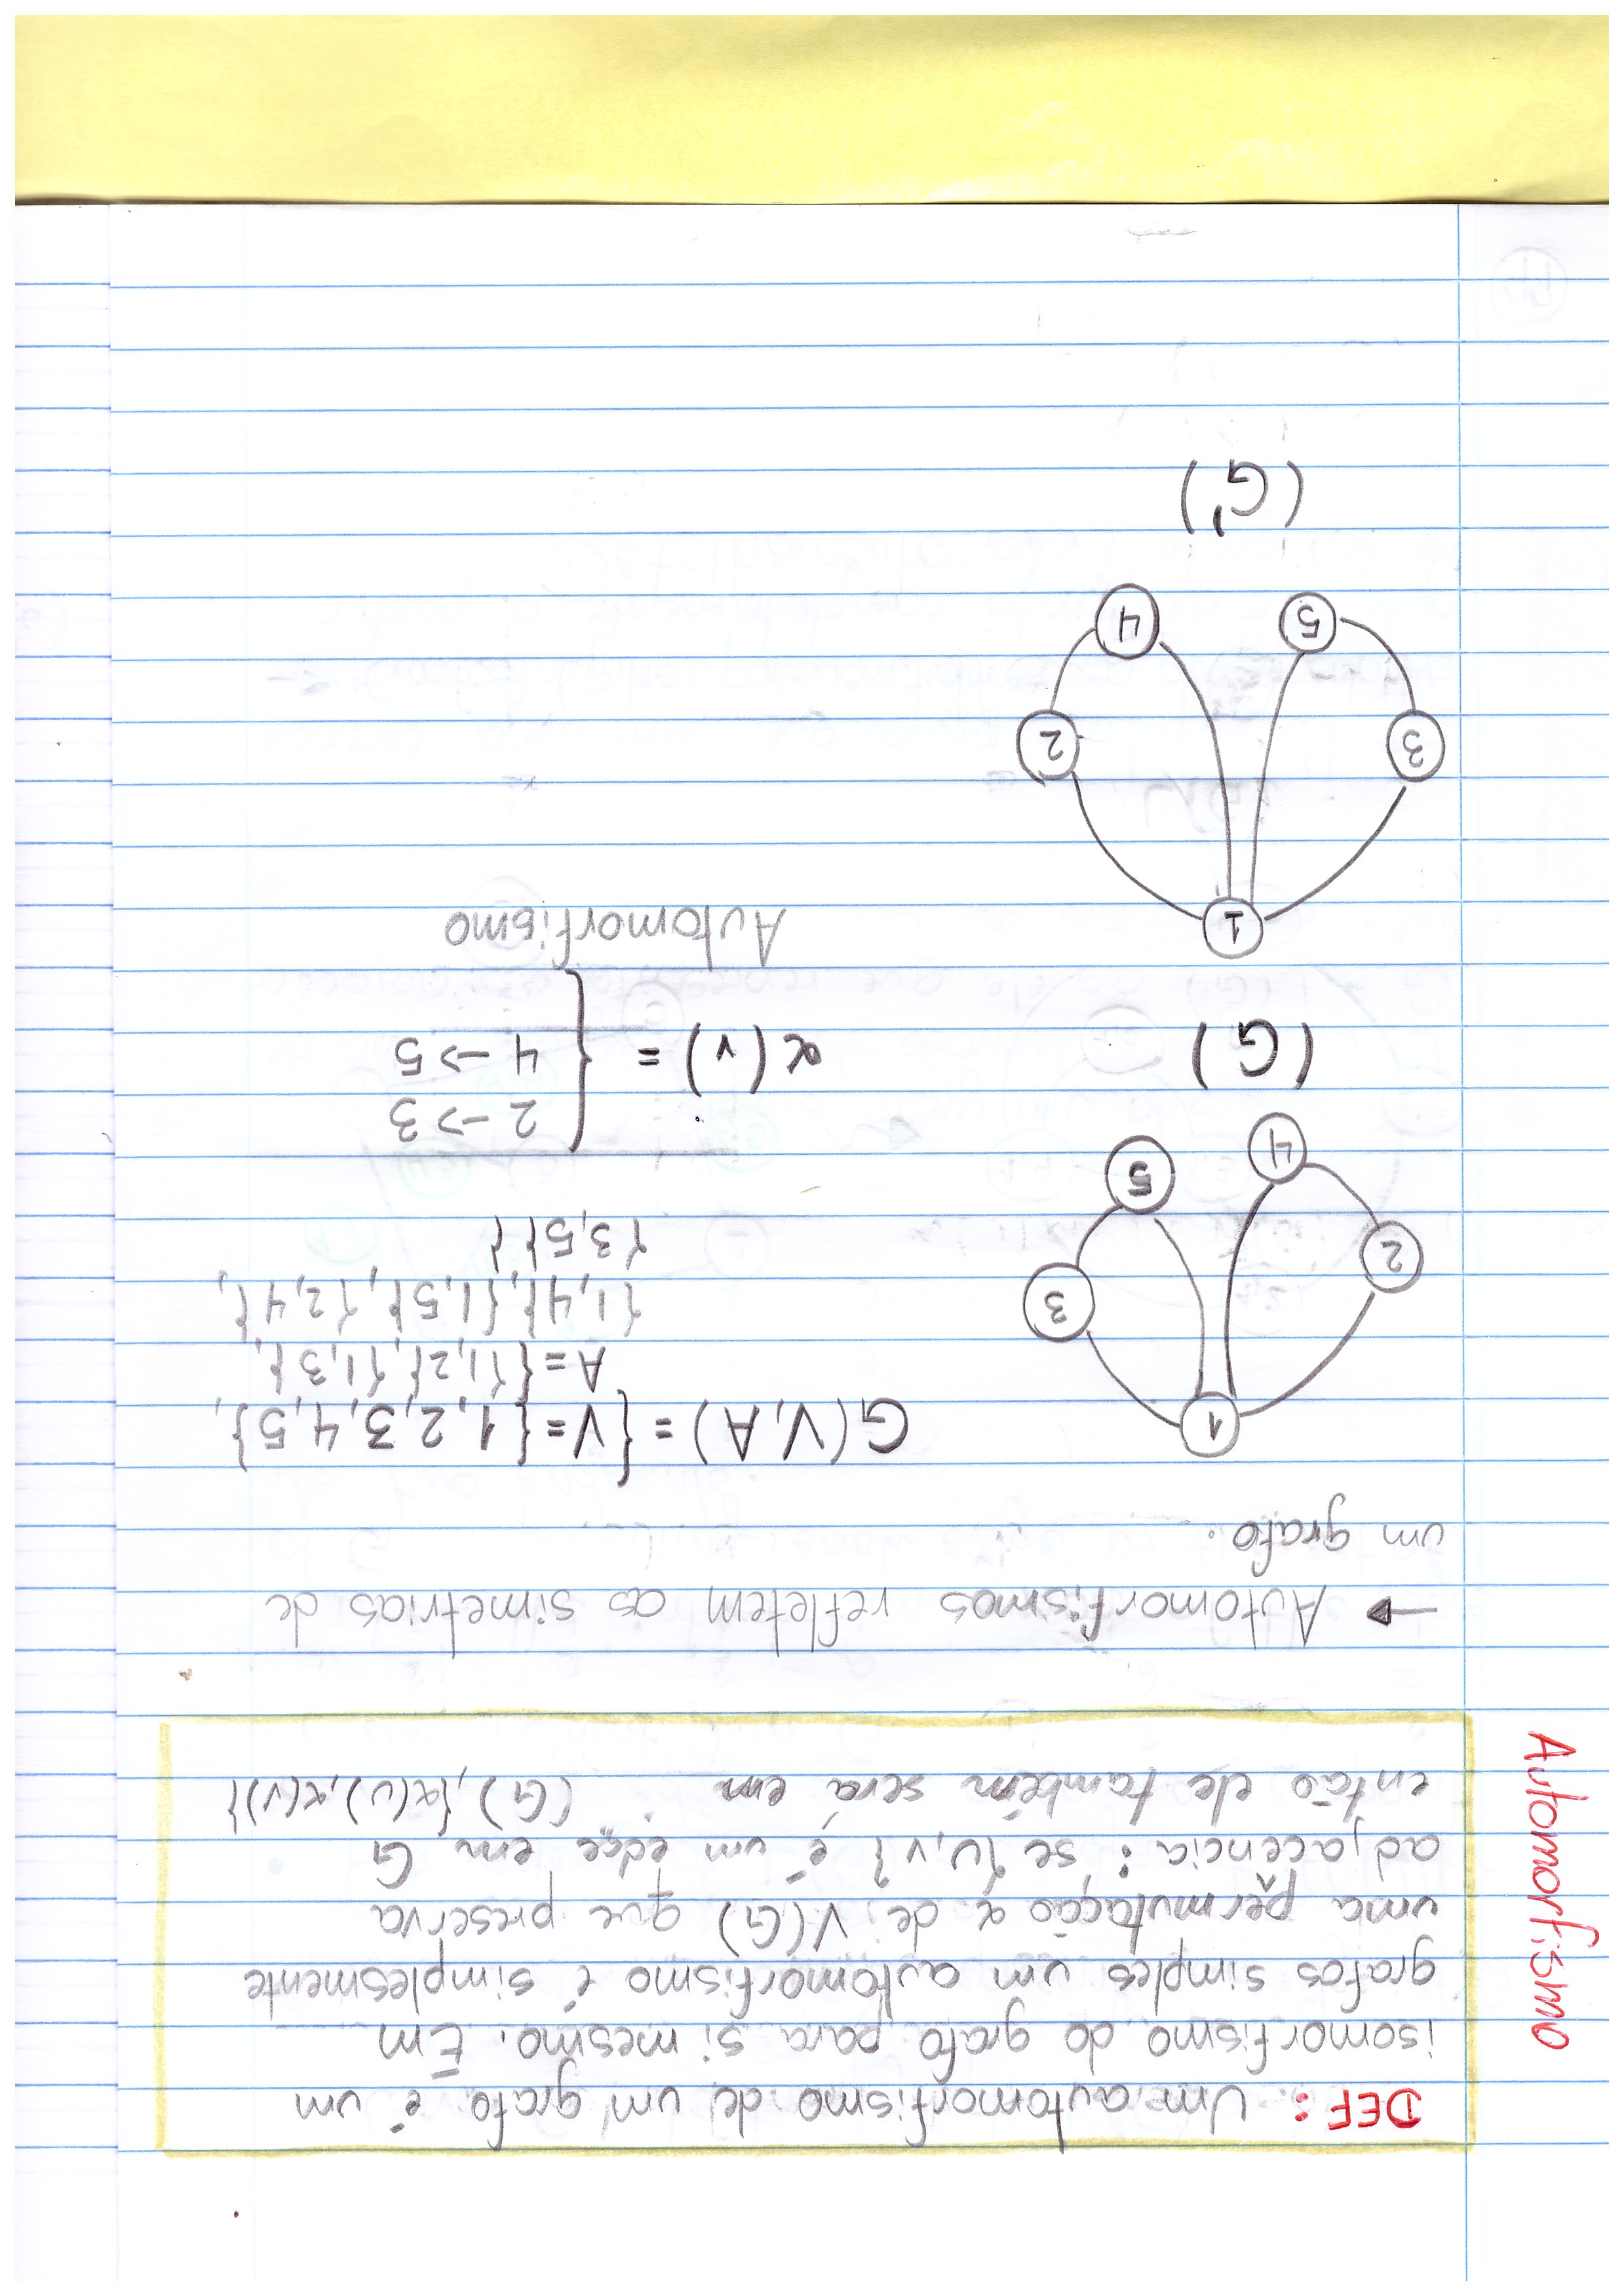 Automorfismo
DEF: Um automorfismo de um grafo é um
isomorfismo do grafo para si mesmo. Em
grafos simples um automorfismo é simplesmente
uma permutação α de V(G) que preserva
adjacência: se {u,v} é um edge em G
então ele também será em (G),{α(u),α(v)}
→ Automorfismos refletem as simetrias de
um grafo.
G(V,A) = { V={1,2,3,4,5},
A={{1,2},{1,3},
{1,4},{1,5},{2,4},
{3,5}}
1
3
2
5
4
(G)
α(v) = {
2 -> 3
4 -> 5
Automorfismo
1
3
2
5
4
(G')